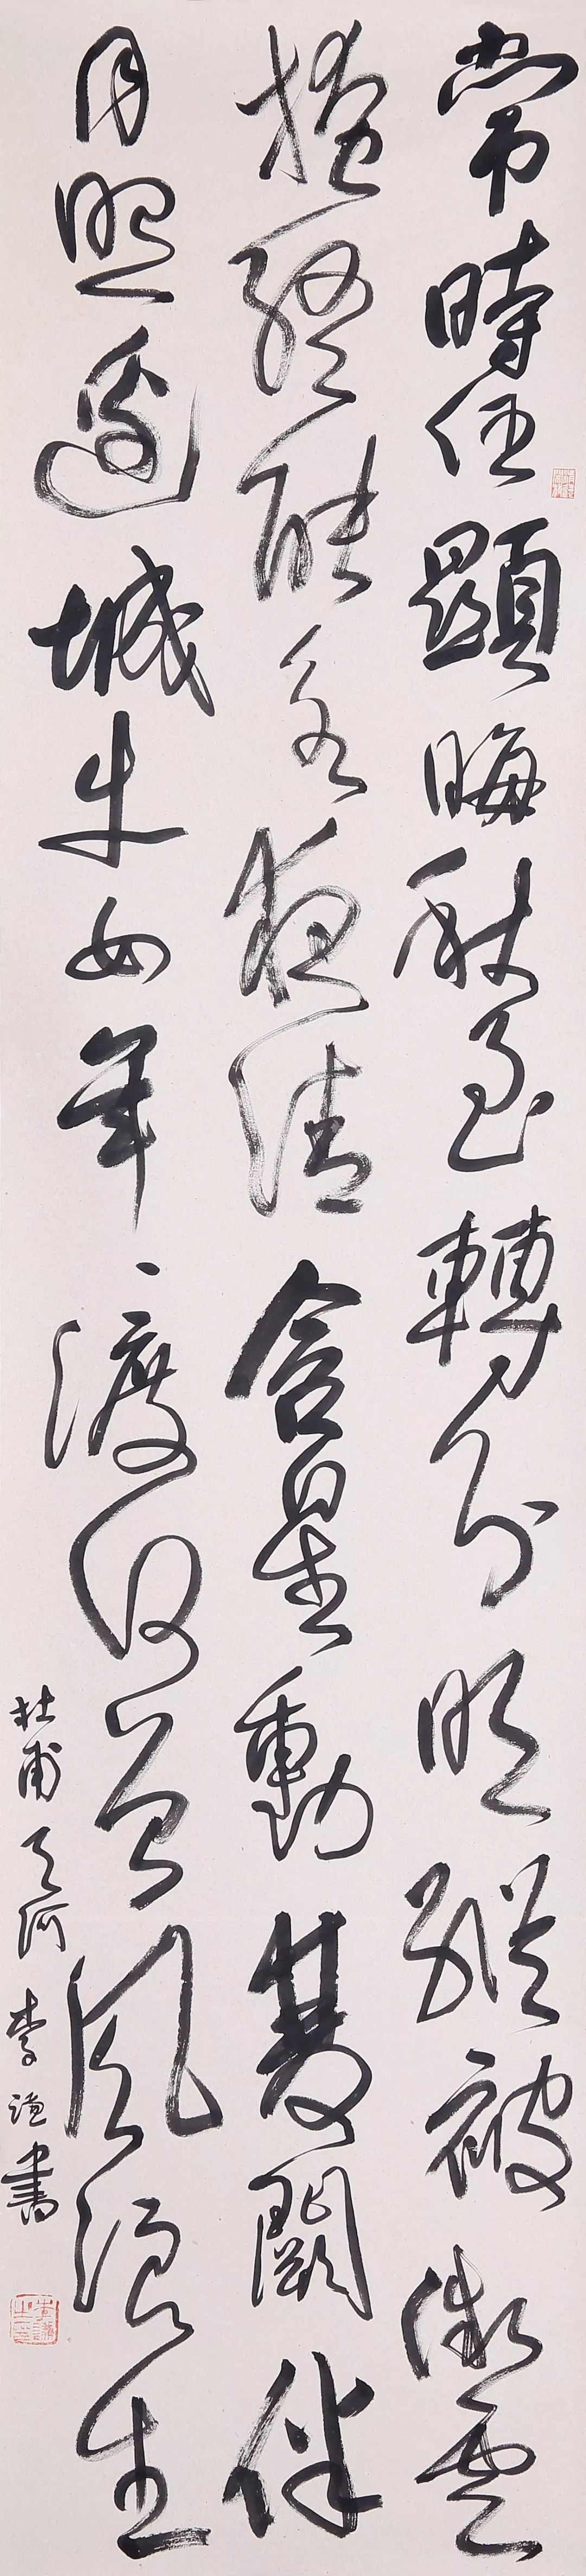 常時任顯晦秋至轉分明縱被微雲
掩終能永夜清含星動雙闕伴
月照邊城牛女年々渡何曾風浪生
杜甫天河李謙書